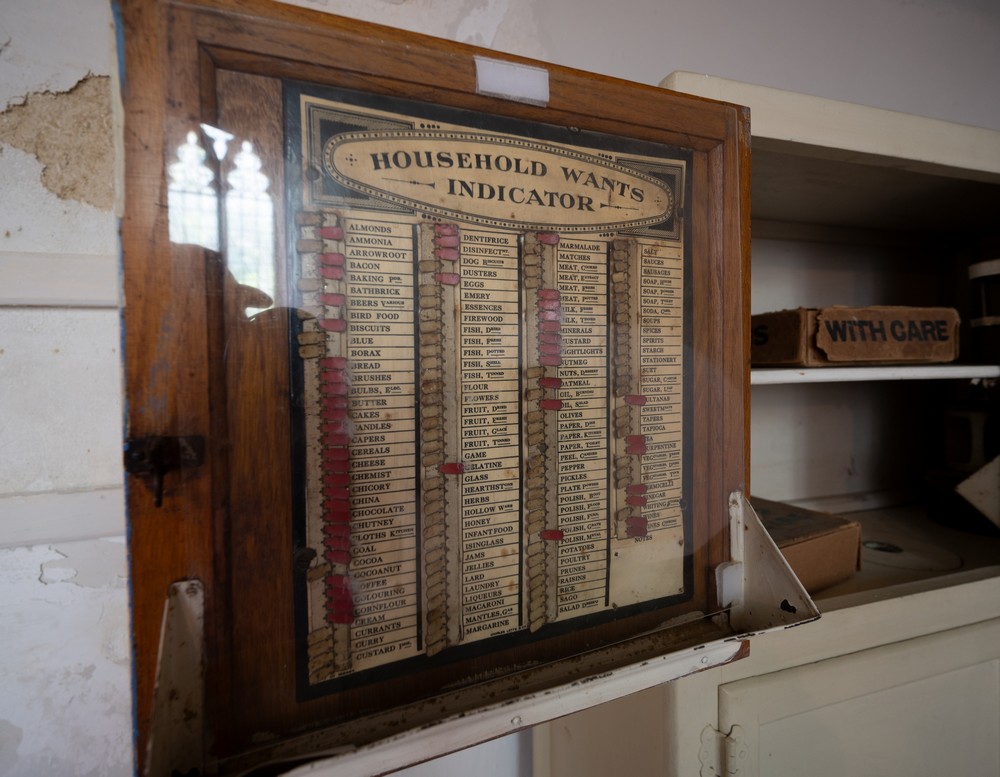 HOUSEHOLD WANTS
INDICATOR
ALMONDS
AMMONIA
ARROWROOT
BACON
BAKING
BATHBRICK
BEERS VARIOUS
BIRD FOOD
BISCUITS
BLUE
BORAX
BREAD
BRUSHES
BULBS,
BUTTER
CAKES
CANDLES
CAPERS
CEREALS
CHEESE
CHEMIST
CHICORY
CHINA
CHOCOLATE
CHUTNEY
CLOTHS KITCHEN
COAL
COCOA
COCOANUT
COFFEE
COLOURING
CORNFLOUR
CREAM
CURRANTS
CURRY
CUSTARD
DENTIFRICE
DISINFECT
DOG BISCUITS
DUSTERS
EGGS
EMERY
ESSENCES
FIREWOOD
FISH, DRIED
FISH, FRESH
FISH, POTTED
FISH, SHELL
FISH, TINNED
FLOUR
FLOWERS
FRUIT, DRIED
FRUIT, FRESH
FRUIT, GLACÉ
FRUIT, TINNED
GAME
GELATINE
GLASS
HEARTHSTONE
HERBS
HOLLOW WARE
HONEY
INFANT FOOD
ISINGLASS
JAMS
JELLIES
LARD
LAUNDRY
LIQUEURS
MACARONI
MANTLES, GAS
MARGARINE
MARMALADE
MATCHES
MEAT, COOKED
MEAT, EXTRACT
MEAT, FRESH
MEAT, POTTED
MILK, FRESH
MILK, TINNED
MINERALS
MUSTARD
NIGHTLIGHTS
NUTMEG
NUTS, DESSERT
OATMEAL
OIL, BURNING
OIL, SALAD
OLIVES
PAPER,
PAPER, KITCHEN
PAPER, TOILET
PEEL, CANDIED
PEPPER
PICKLES
PLATE POWDER
POLISH, BOOT
POLISH,
POLISH,
POLISH, GRATE
POLISH, METAL
POTATOES
POULTRY
PRUNES
RAISINS
RICE
SAGO
SALAD DRESSING
SALT
SAUCES
SAUSAGES
SOAP,
SOAP,
SOAP, TOILET
SODA,
SOUPS
SPICES
SPIRITS
STARCH
STATIONERY
SUET
SUGAR,
SUGAR,
SULTANAS
SWEETMEATS
TAPERS
TAPIOCA
TEA
TURPENTINE
VERMICELLI
VINEGAR
WHITING
WINES
NOTES
S
WITH CARE